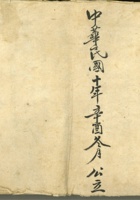 中華民國十年辛酉冬月 公立